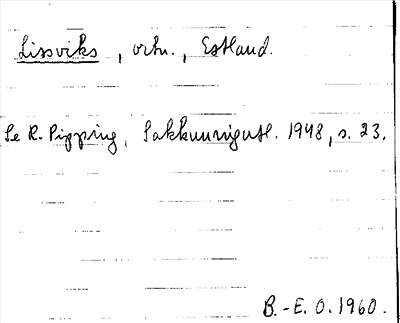 Lissviks, ortn., Estland.
Se R. Pipping, Sakkunnigutl. 1948, s. 23.
B.-E. O. 1960.